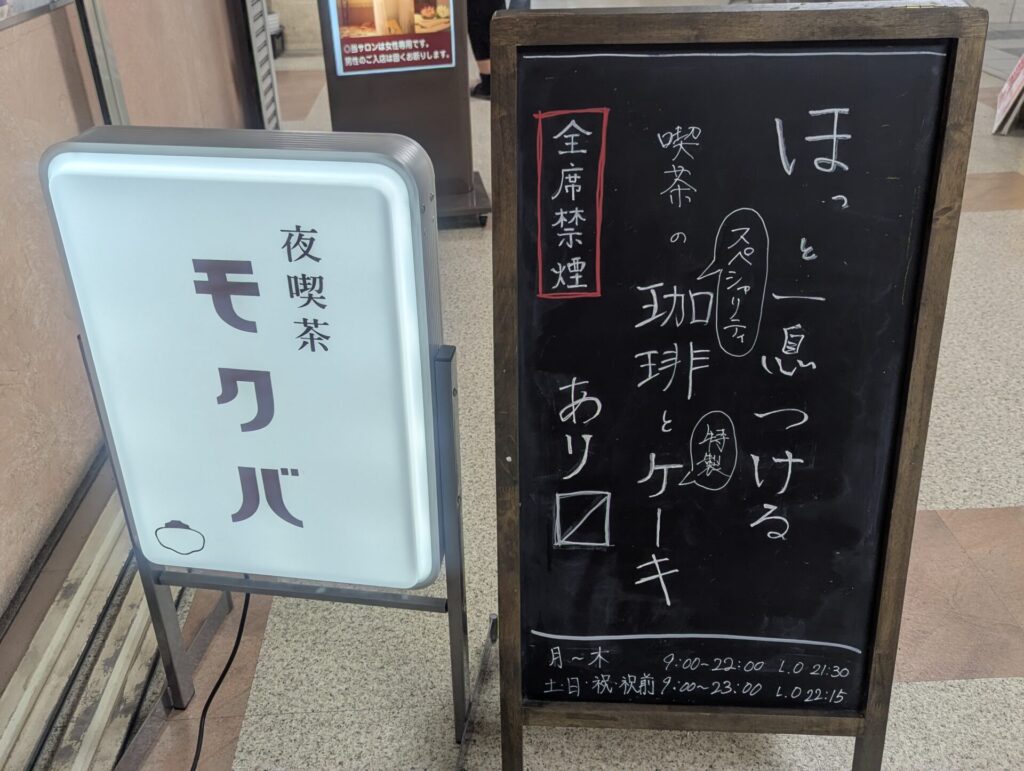 ◎当サロンは女性専用です。
男性のご入店は固くお断りします。
夜喫茶
モクバ
ほっと一息つける
スペシャリティ
喫茶の珈琲とケーキ
特製
全席禁煙
あり〼
月~木 9:00~22:00 L.O 21:30
土・日・祝・祝前 9:00~23:00 L.O 22:15